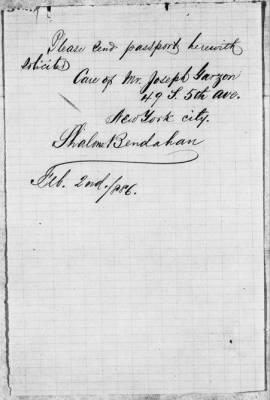 Please send passport herewith
solicited
Care of Mr. Joseph Garzon
49 S. 5th ave.
New York city.
Shalom Bendahan
Feb. 2nd/1886.